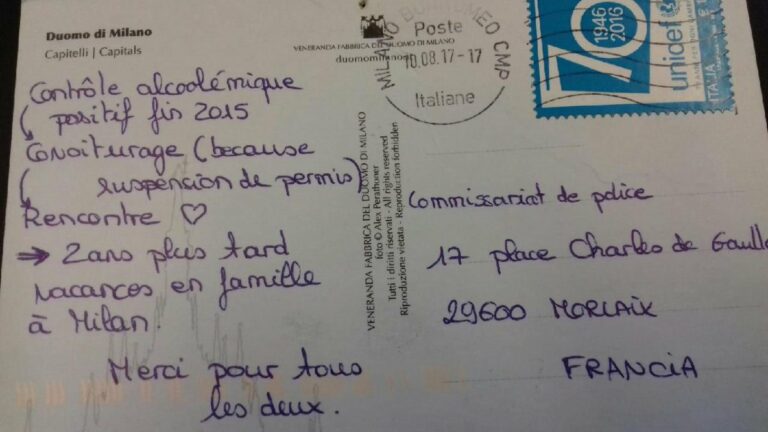 Duomo di Milano
Capitelli | Capitals
Contrôle alcoolémique
positif fin 2015
Covoiturage (because
suspension de permis)
Rencontre ♡
→ 2 ans plus tard
vacances en famille
à Milan.
Merci pour tous
les deux.
VENERANDA FABBRICA DEL DUOMO DI MILANO
duomomilano
VENERANDA FABBRICA DEL DUOMO DI MILANO
foto © Alex Perathoner
Tutti i diritti riservati - All rights reserved
Riproduzione vietata - Reproduction forbidden
MILANO BORROMEO CMP
Poste
10.08.17-17
Italiane
70
1946
2016
unicef
ITALIA
Commissariat de police
17 place Charles de Gaulle
29600 MORLAIX
FRANCIA